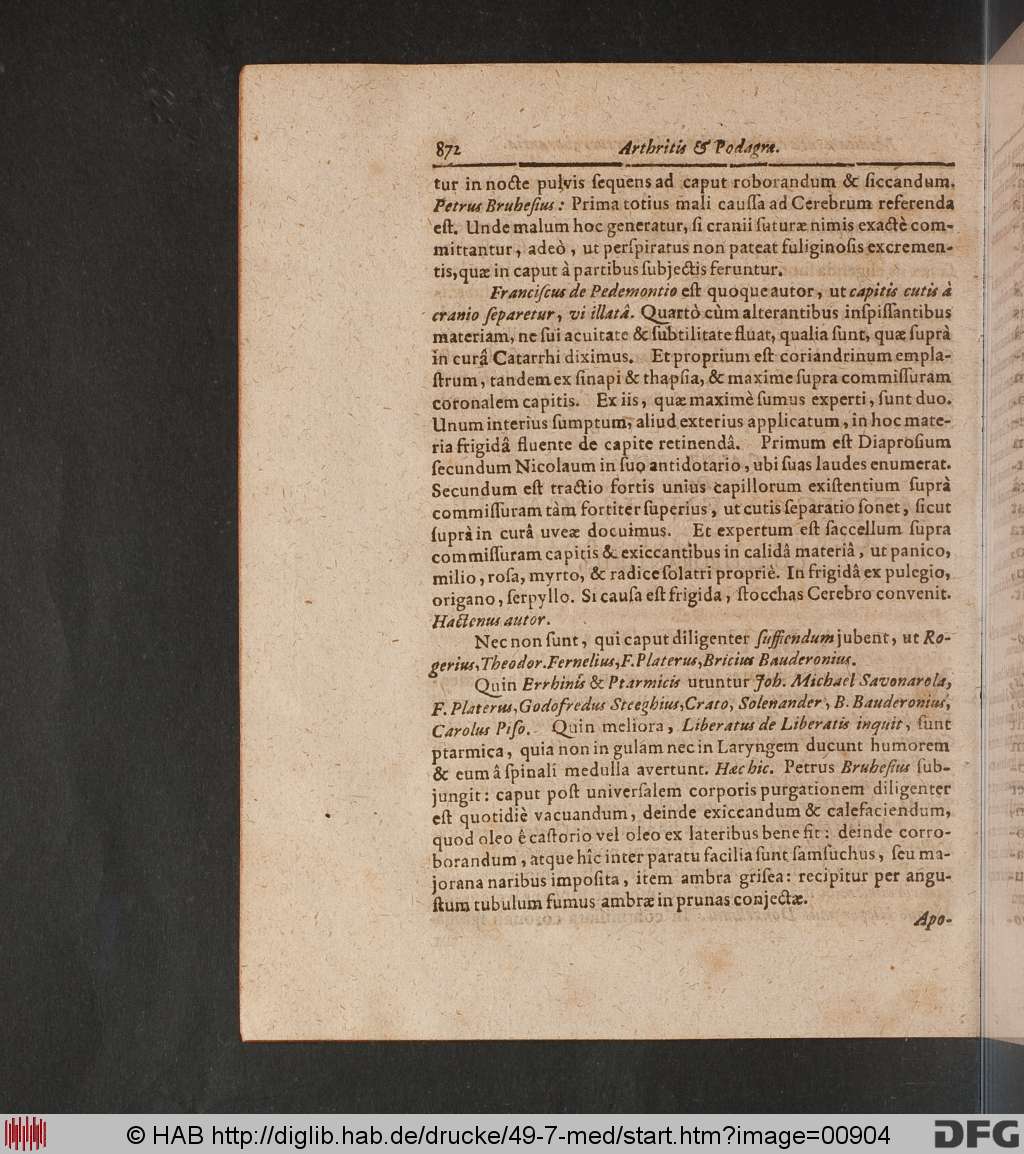 872 Arthritis & Podagræ.
tur in nocte pulvis ſequens ad caput roborandum & ſiccandum.
Petrus Bruheſius: Prima totius mali cauſſa ad Cerebrum referenda
eſt. Unde malum hoc generatur, ſi cranii ſuturæ nimis exactè com-
mittantur, adeò, ut perſpiratus non pateat fuliginoſis excremen-
tis, quæ in caput à partibus ſubjectis feruntur.
Franciſcus de Pedemontio eſt quoque autor, ut capitis cutis à
cranio ſeparetur, vi illatâ. Quartò cùm alterantibus inſpiſſantibus
materiam, ne ſui acuitate & ſubtilitate fluat, qualia ſunt, quæ ſuprà
in curâ Catarrhi diximus. Et proprium eſt coriandrinum empla-
ſtrum, tandem ex ſinapi & thapſia, & maxime ſupra commiſſuram
coronalem capitis. Ex iis, quæ maximè ſumus experti, ſunt duo.
Unum interius ſumptum, aliud exterius applicatum, in hoc mate-
ria frigidâ fluente de capite retinendâ. Primum eſt Diaproſium
ſecundum Nicolaum in ſuo antidotario, ubi ſuas laudes enumerat.
Secundum eſt tractio fortis unius capillorum exiſtentium ſuprà
commiſſuram tàm fortiter ſuperius, ut cutis ſeparatio ſonet, ſicut
ſuprà in curâ uveæ docuimus. Et expertum eſt ſaccellum ſupra
commiſſuram capitis & exiccantibus in calidâ materiâ, ut panico,
milio, roſa, myrto, & radice ſolatri propriè. In frigidâ ex pulegio,
origano, ſerpyllo. Si cauſa eſt frigida, ſtoechas Cerebro convenit.
Hactenus autor.
Nec non ſunt, qui caput diligenter ſuffiendum jubent, ut Ro-
gerius, Theodor. Fernelius, F. Platerus, Bricius Bauderonius.
Quin Errhinis & Ptarmicis utuntur Joh. Michael Savonarola,
F. Platerus, Godofredus Steeghius, Crato, Solenander, B. Bauderonius,
Carolus Piſo. Quin meliora, Liberatus de Liberatis inquit, ſunt
ptarmica, quia non in gulam nec in Laryngem ducunt humorem
& eum â ſpinali medulla avertunt. Hæc hic. Petrus Bruheſius ſub-
jungit: caput poſt univerſalem corporis purgationem diligenter
eſt quotidiè vacuandum, deinde exiccandum & calefaciendum,
quod oleo ê caſtorio vel oleo ex lateribus bene fit: deinde corro-
borandum, atque hîc inter paratu facilia ſunt ſamſuchus, ſeu ma-
jorana naribus impoſita, item ambra griſea: recipitur per angu-
ſtum tubulum fumus ambræ in prunas conjectæ.
Apo-
© HAB http://diglib.hab.de/drucke/49-7-med/start.htm?image=00904
DFG